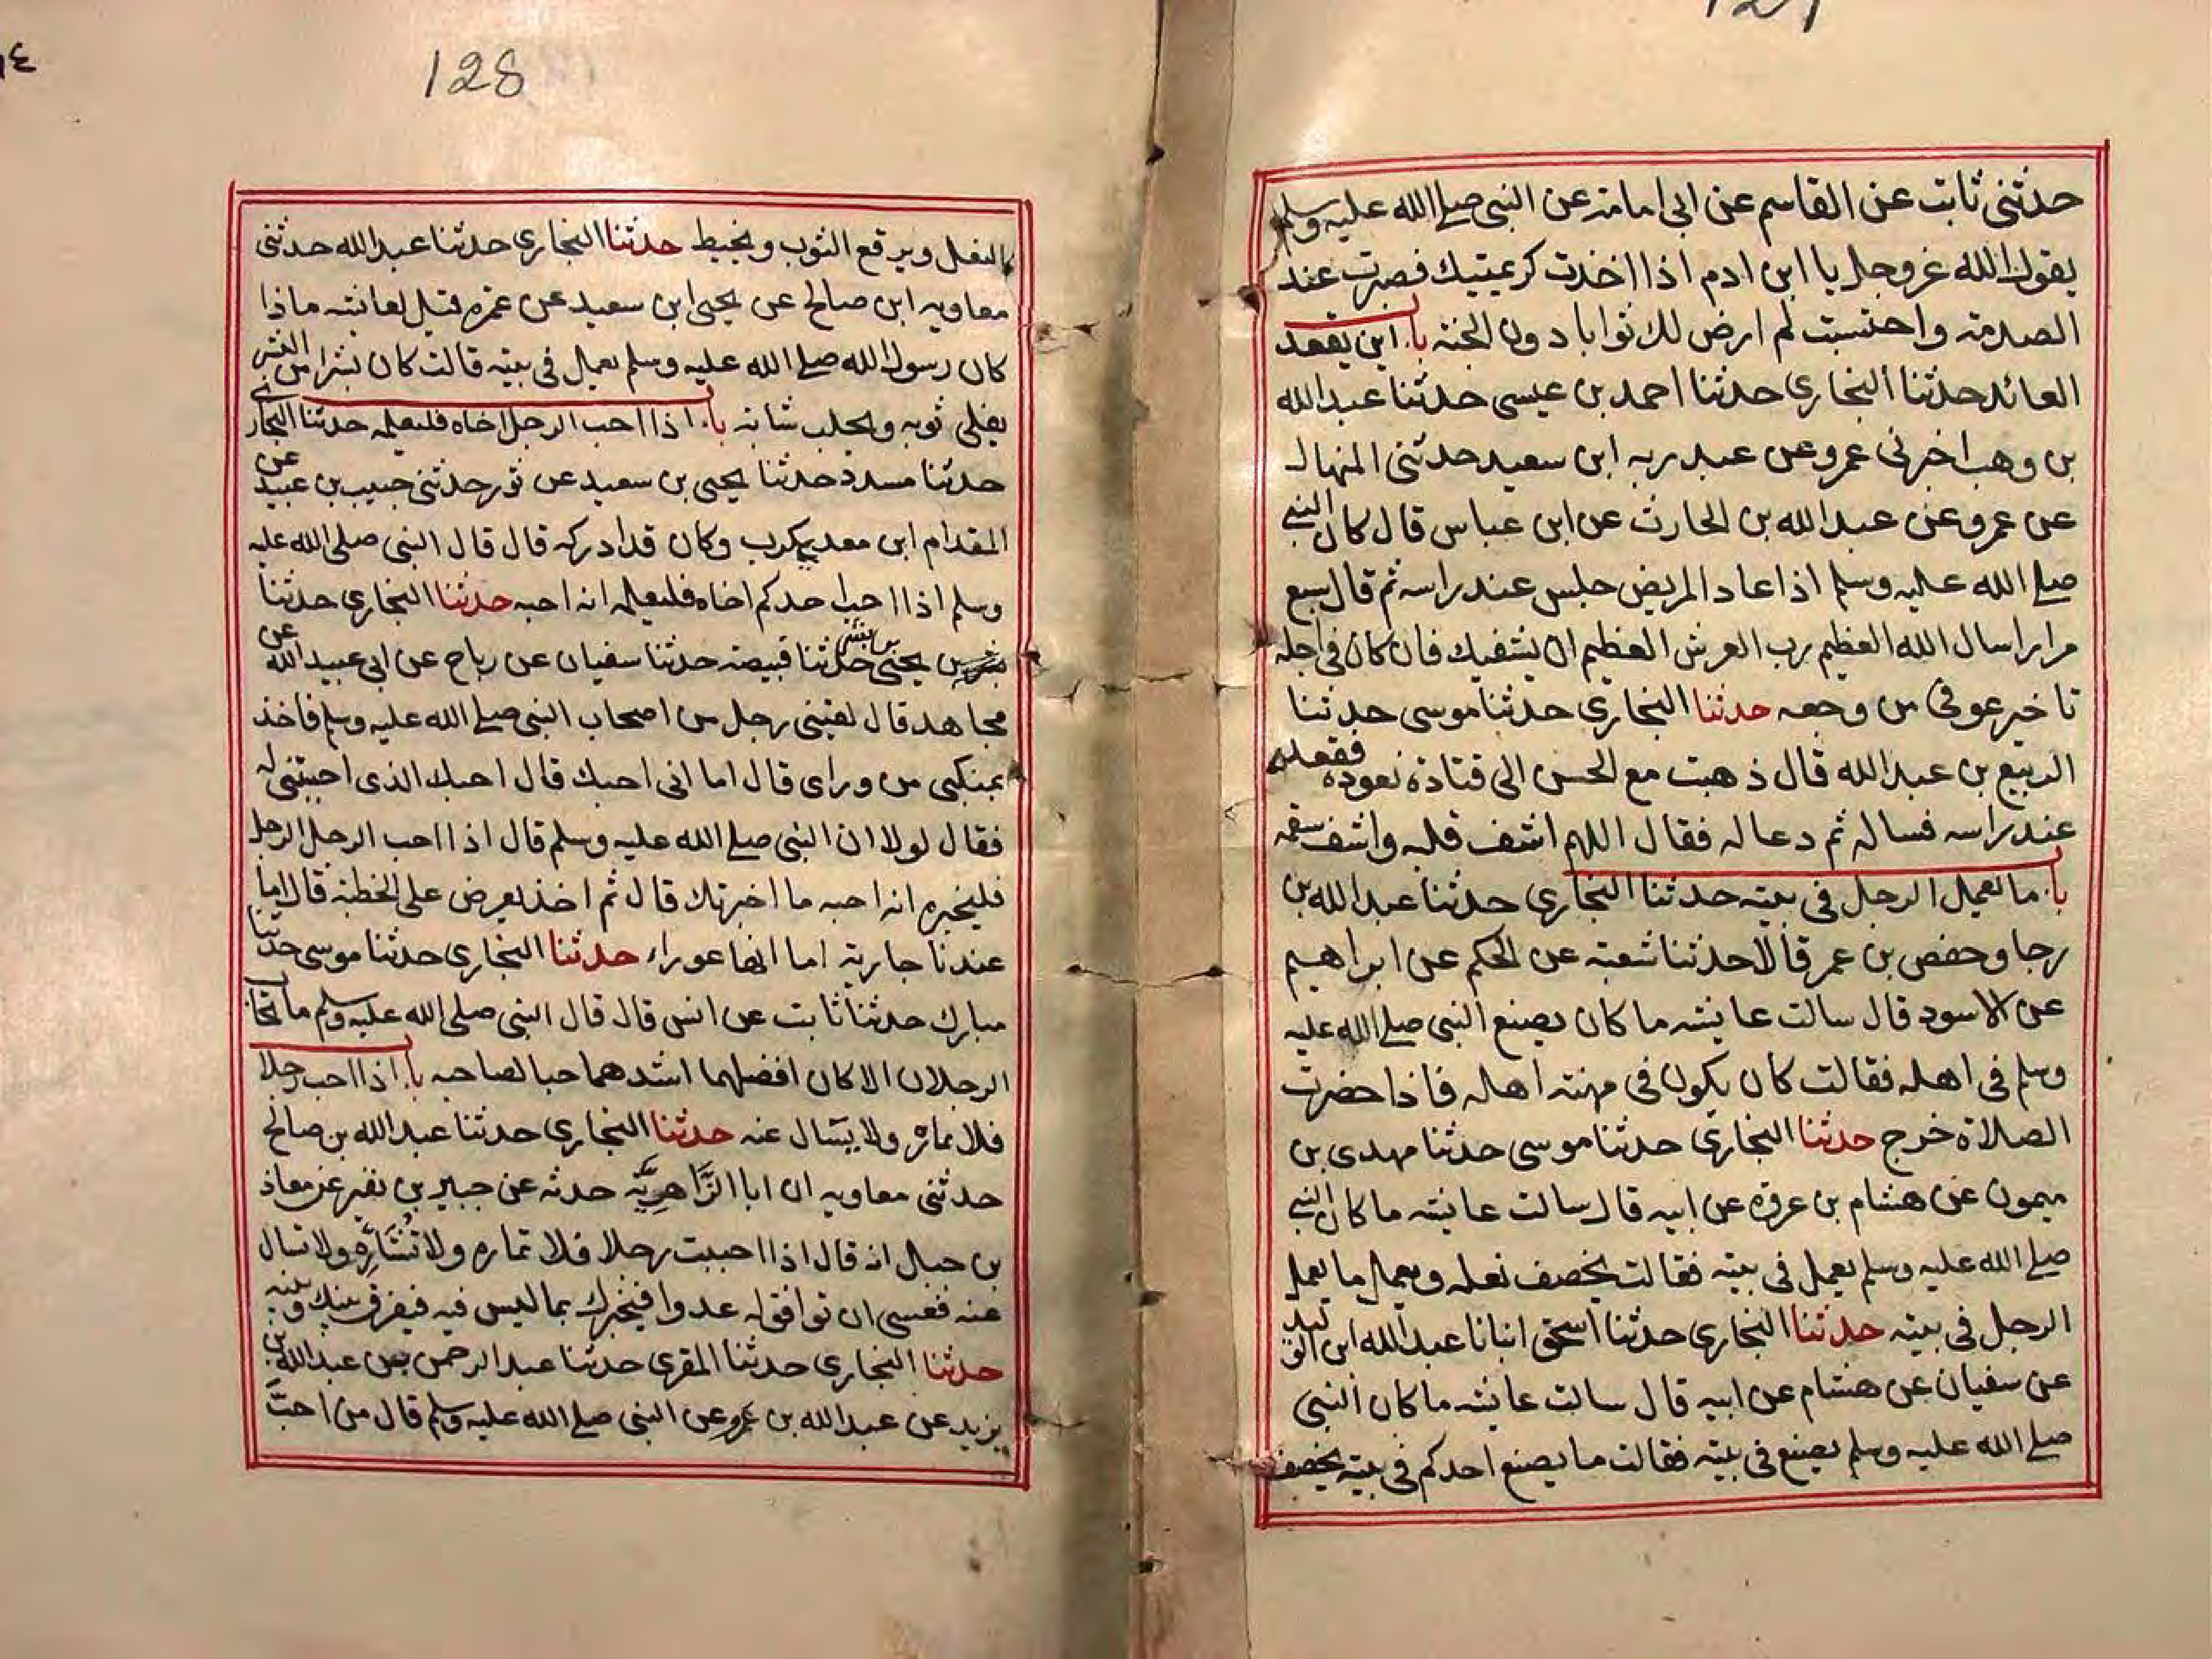 127
حدثنى ثابت عن القاسم عن ابى امامة عن النبى صلى الله عليه وسلم
يقول الله عز وجل يا ابن ادم اذا اخذت كريمتيك فصبرت عند
الصدمة واحتسبت لم ارض لك ثوابا دون الجنة باب اين يقعد
العائد حدثنا البخارى حدثنا احمد بن عيسى حدثنا عبد الله
بن وهب اخبرنى عمرو عن عبد ربه ابن سعيد حدثنى المنهال
عن عمرو عن عبد الله بن الحارث عن ابن عباس قال كان النبى
صلى الله عليه وسلم اذا عاد المريض جلس عند راسه ثم قال سبع
مرار اسال الله العظيم رب العرش العظيم ان يشفيك فان كان فى اجله
تاخير عوفى من وجعه حدثنا البخارى حدثنا موسى حدثنا
الربيع بن عبد الله قال ذهبت مع الحسن الى قتادة نعوده فقعد
عند راسه فساله ثم دعا له فقال اللهم اشف قلبه واشف سقمه
باب ما يعمل الرجل فى بيته حدثنا البخارى حدثنا عبد الله بن
رجا وحفص بن عمر قالا حدثنا شعبة عن الحكم عن ابراهيم
عن الاسود قال سالت عايشه ما كان يصنع النبى صلى الله عليه
وسلم فى اهله فقالت كان يكون فى مهنة اهله فاذا حضرت
الصلاة خرج حدثنا البخارى حدثنا موسى حدثنا مهدى بن
ميمون عن هشام بن عروه عن ابيه قال سالت عايشه ما كان النبى
صلى الله عليه وسلم يعمل فى بيته فقالت يخصف نعله ويعمل ما يعمل
الرجل فى بيته حدثنا البخارى حدثنا اسحق انبانا عبد الله ابن الوليد
عن سفيان عن هشام عن ابيه قال سالت عايشه ما كان النبى
صلى الله عليه وسلم يصنع فى بيته فقالت ما يصنع احدكم فى بيته يخصف
128
النعل ويرقع الثوب ويخيط حدثنا البخارى حدثنا عبد الله حدثنى
معاويه ابن صالح عن يحيى ابن سعيد عن عمره قيل لعايشه ماذا
كان رسول الله صلى الله عليه وسلم يعمل فى بيته قالت كان بشرا من البشر
يفلى ثوبه ويحلب شاته باب اذا احب الرجل اخاه فليعلمه حدثنا البخارى
حدثنا مسدد حدثنا يحيى بن سعيد عن ثور حدثنى حبيب بن عبيد عن
المقدام ابن معديكرب وكان قد ادركه قال قال النبى صلى الله عليه
وسلم اذا احب احدكم اخاه فليعلمه انه احبه حدثنا البخارى حدثنا
يحيى بن بشر حدثنا قبيصة حدثنا سفيان عن رباح عن ابى عبيد الله عن
مجاهد قال لقينى رجل من اصحاب النبى صلى الله عليه وسلم فاخذ
بمنكبى من وراى قال اما انى احبك قال احبك الذى احببتنى له
فقال لولا ان النبى صلى الله عليه وسلم قال اذا احب الرجل الرجل
فليخبره انه احبه ما اخبرتك قال ثم اخذ يعرض على الخطبة قال اما
عندنا جارية اما انها عوراء حدثنا البخارى حدثنا موسى حدثنا
مبارك حدثنا ثابت عن انس قال قال النبى صلى الله عليه وسلم ما تحابا
الرجلان الا كان افضلهما اشدهما حبا لصاحبه باب اذا احب رجلا
فلا يماره ولا يسال عنه حدثنا البخارى حدثنا عبد الله بن صالح
حدثنى معاويه ان ابا الزَّاهِريَّه حدثه عن جبير بن نفير عن معاذ
بن جبال انه قال اذا احببت رجلا فلا تماره ولا تُشَارِّه ولا تسال
عنه فعسى ان توافق له عدوا فيخبرك بما ليس فيه فيفرق بينك وبينه
حدثنا البخارى حدثنا المقرى حدثنا عبد الرحمن عن عبد الله بن
يزيد عن عبد الله بن عمرو عن النبى صلى الله عليه وسلم قال من احبَّ